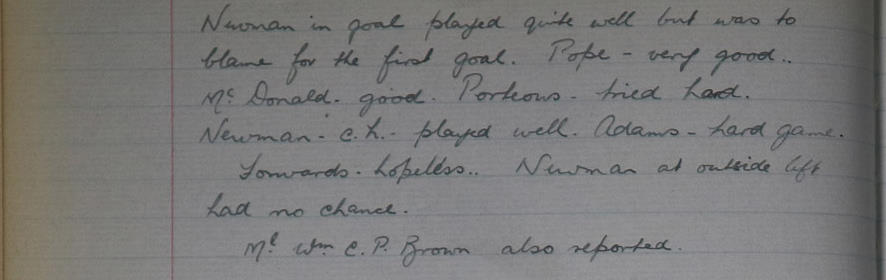 Newman in goal played quite well but was to
blame for the first goal. Pope - very good..
Mc Donald. good. Porteous - tried hard.
Newman - c.h. - played well. Adams - hard game.
Forwards - hopeless.. Newman at outside left
had no chance.
Mr Wm C. P. Brown also reported.